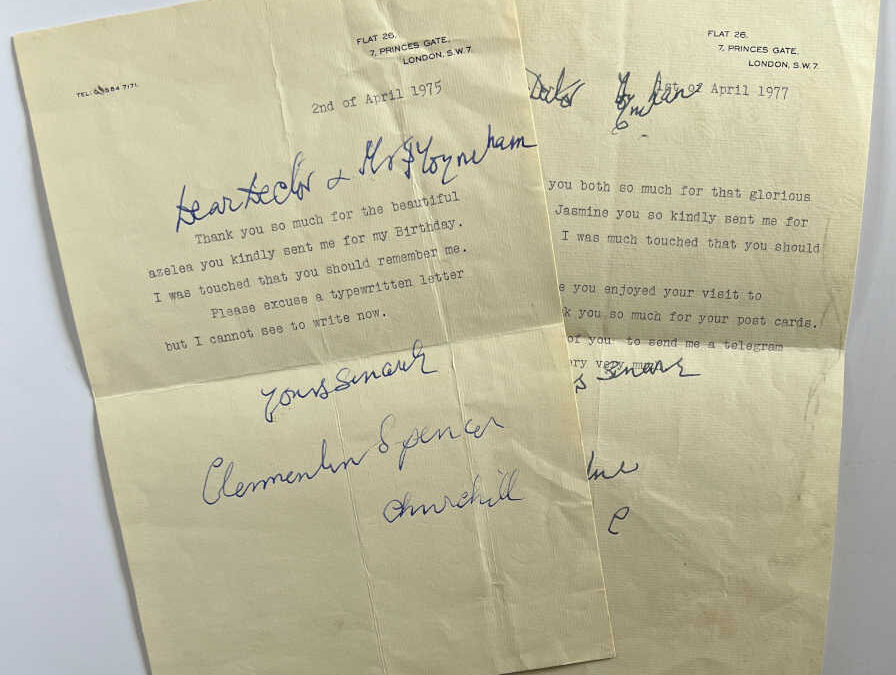 FLAT 26,
7, PRINCES GATE,
LONDON, S.W.7.
TEL: 584 7171.
2nd of April 1975
Dear Doctor & Mrs Moyneham
Thank you so much for the beautiful
azelea you kindly sent me for my Birthday.
I was touched that you should remember me.
Please excuse a typewritten letter
but I cannot see to write now.
Yours
Clementin Spencer
Churchill
FLAT 26,
7, PRINCES GATE,
LONDON, S.W.7.
1st of April 1977
Doctor
you both so much for that glorious
Jasmine you so kindly sent me for
I was much touched that you should
you enjoyed your visit to
you so much for your post cards.
of you to send me a telegram
very